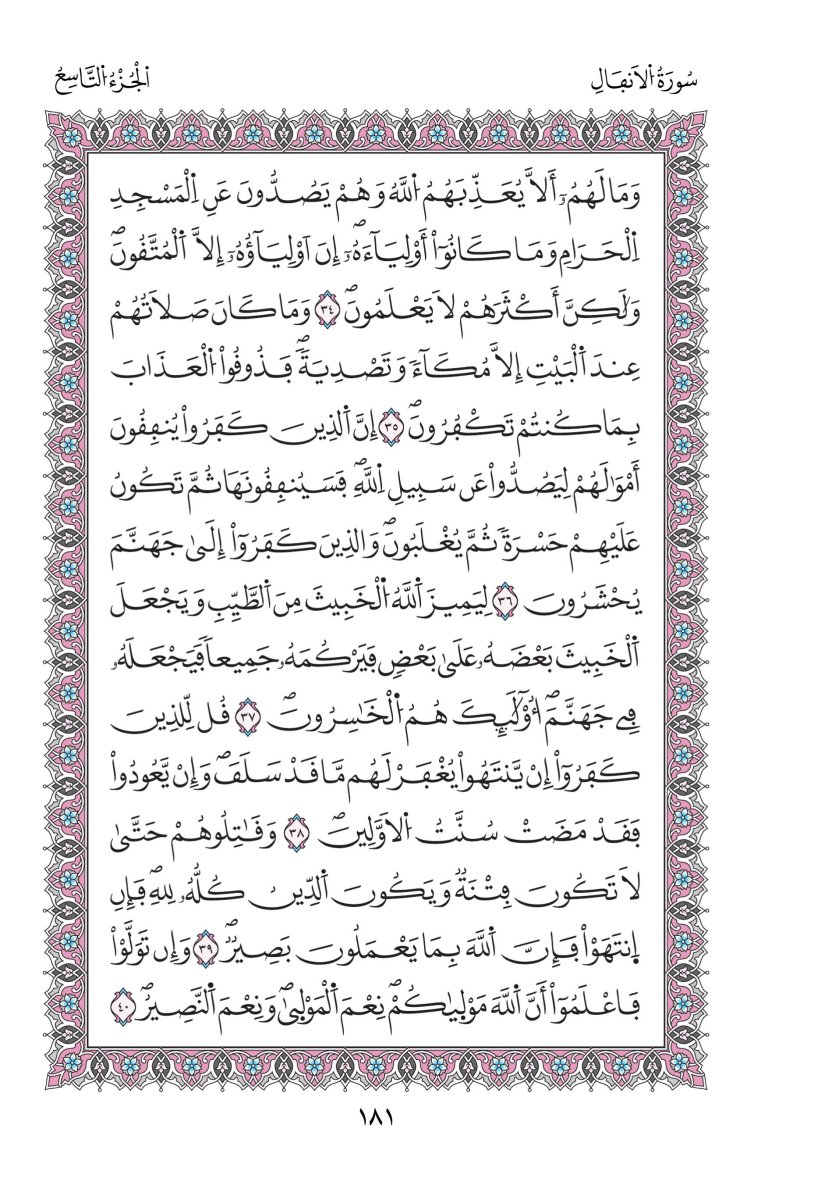 سُورَةُ اُ۬لَانفَالِ
اَ۬لْجُزْءُ اُ۬لتَّاسِعُ
وَمَا لَهُمُۥٓ أَلَّا يُعَذِّبَهُمُ اُ۬للَّهُ وَهُمْ يَصُدُّونَ عَنِ اِ۬لْمَسْجِدِ
اِ۬لْحَرَامِ وَمَا كَانُوٓاْ أَوْلِيَآءَهُۥٓۖ إِنَ اَوْلِيَآؤُهُۥٓ إِلَّا اَ۬لْمُتَّقُونَۖ
وَلَٰكِنَّ أَكْثَرَهُمْ لَا يَعْلَمُونَۖ ٣٤ وَمَا كَانَ صَلَاتُهُمْ
عِندَ اَ۬لْبَيْتِ إِلَّا مُكَآءٗ وَتَصْدِيَةٗۖ فَذُوقُواْ اُ۬لْعَذَابَ
بِمَا كُنتُمْ تَكْفُرُونَۖ ٣٥ إِنَّ اَ۬لذِينَ كَفَرُواْ يُنفِقُونَ
أَمْوَٰلَهُمْ لِيَصُدُّواْ عَن سَبِيلِ اِ۬للَّهِۖ فَسَيُنفِقُونَهَا ثُمَّ تَكُونُ
عَلَيْهِمْ حَسْرَةٗ ثُمَّ يُغْلَبُونَۖ وَالذِينَ كَفَرُوٓاْ إِلَىٰ جَهَنَّمَ
يُحْشَرُونَ ٣٦ لِيَمِيزَ اَ۬للَّهُ اُ۬لْخَبِيثَ مِنَ اَ۬لطَّيِّبِ وَيَجْعَلَ
اَ۬لْخَبِيثَ بَعْضَهُۥ عَلَىٰ بَعْضٖ فَيَرْكُمَهُۥ جَمِيعاٗ فَيَجْعَلَهُۥ
فِے جَهَنَّمَۖ أُوْلَٰٓئِكَ هُمُ اُ۬لْخَٰسِرُونَۖ ٣٧ قُل لِّلذِينَ
كَفَرُوٓاْ إِنْ يَّنتَهُواْ يُغْفَرْ لَهُم مَّا قَدْ سَلَفَۖ وَإِنْ يَّعُودُواْ
فَقَدْ مَضَتْ سُنَّتُ اُ۬لَاوَّلِينَۖ ٣٨ وَقَٰتِلُوهُمْ حَتَّىٰ
لَا تَكُونَ فِتْنَةٞ وَيَكُونَ اَ۬لدِّينُ كُلُّهُۥ لِلهِۖ فَإِنِ
اِ۪نتَهَوْاْ فَإِنَّ اَ۬للَّهَ بِمَا يَعْمَلُونَ بَصِيرٞۖ ٣٩ وَإِن تَوَلَّوْاْ
فَاعْلَمُوٓاْ أَنَّ اَ۬للَّهَ مَوْل۪يٰكُمْۖ نِعْمَ اَ۬لْمَوْل۪ىٰ وَنِعْمَ اَ۬لنَّصِيرُۖ ٤٠
١٨١